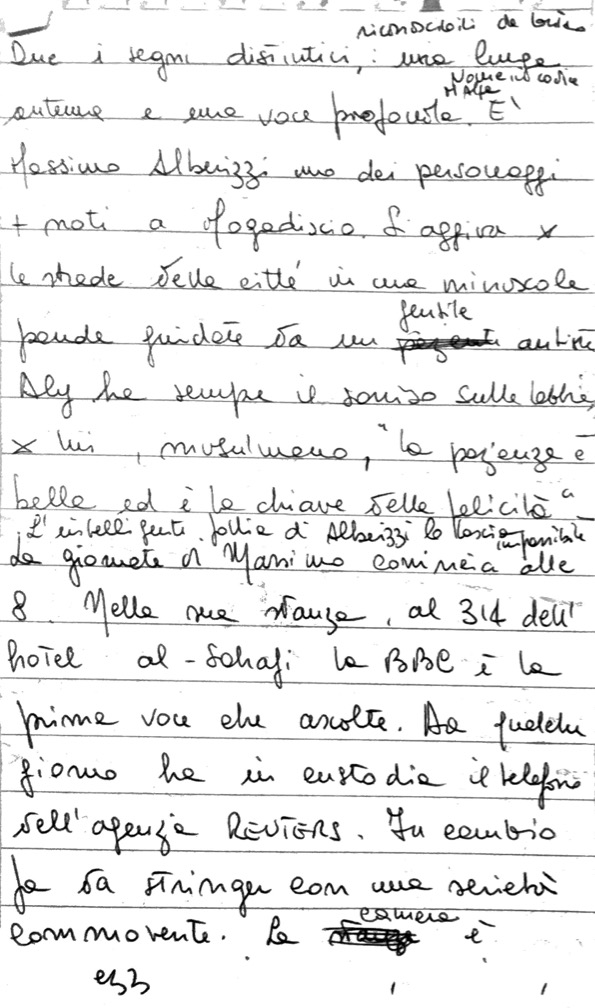 riconoscibili da
Due i segni distintivi,: una lunga
Nome in codice
antenna e una voce profonda. E'
Massimo Alberizzi uno dei personaggi
+ noti a Mogadiscio. S'aggira x
le strade della città in una minuscola
gentile
panda guidata da un autista
Aly ha sempre il sorriso sulle labbra,
x lui, musulmano, "la pazienza è
bella ed è la chiave della felicità"
L'intelligente follia di Alberizzi lo lascia impassibile
La giornata di Massimo comincia alle
8. Nella sua stanza, al 314 dell'
hotel al-Sahafi la BBC è la
prima voce che ascolta. Da qualche
giorno ha in custodia il telefono
dell'agenzia REUTERS. In cambio
fa da stringer con una serietà
camera
commovente. La è